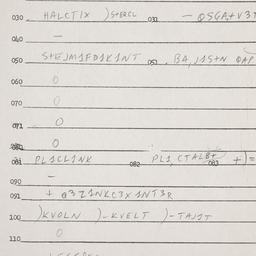 030 HALCTIX )S+ERCL 031 - QSGA+V3T
040 -
050 S+EJM1FD1K1NT 051 . BA,J1S+N QAP
060 0
070 0
071 0
080 0
081 PL1CL1NK 082 PL1,CTALB+ 083 +)=
090 -
091 + Q3Z1NKC3X1NT3R
100 )KVOLN )-KVELT )-TAJ1T
110 0